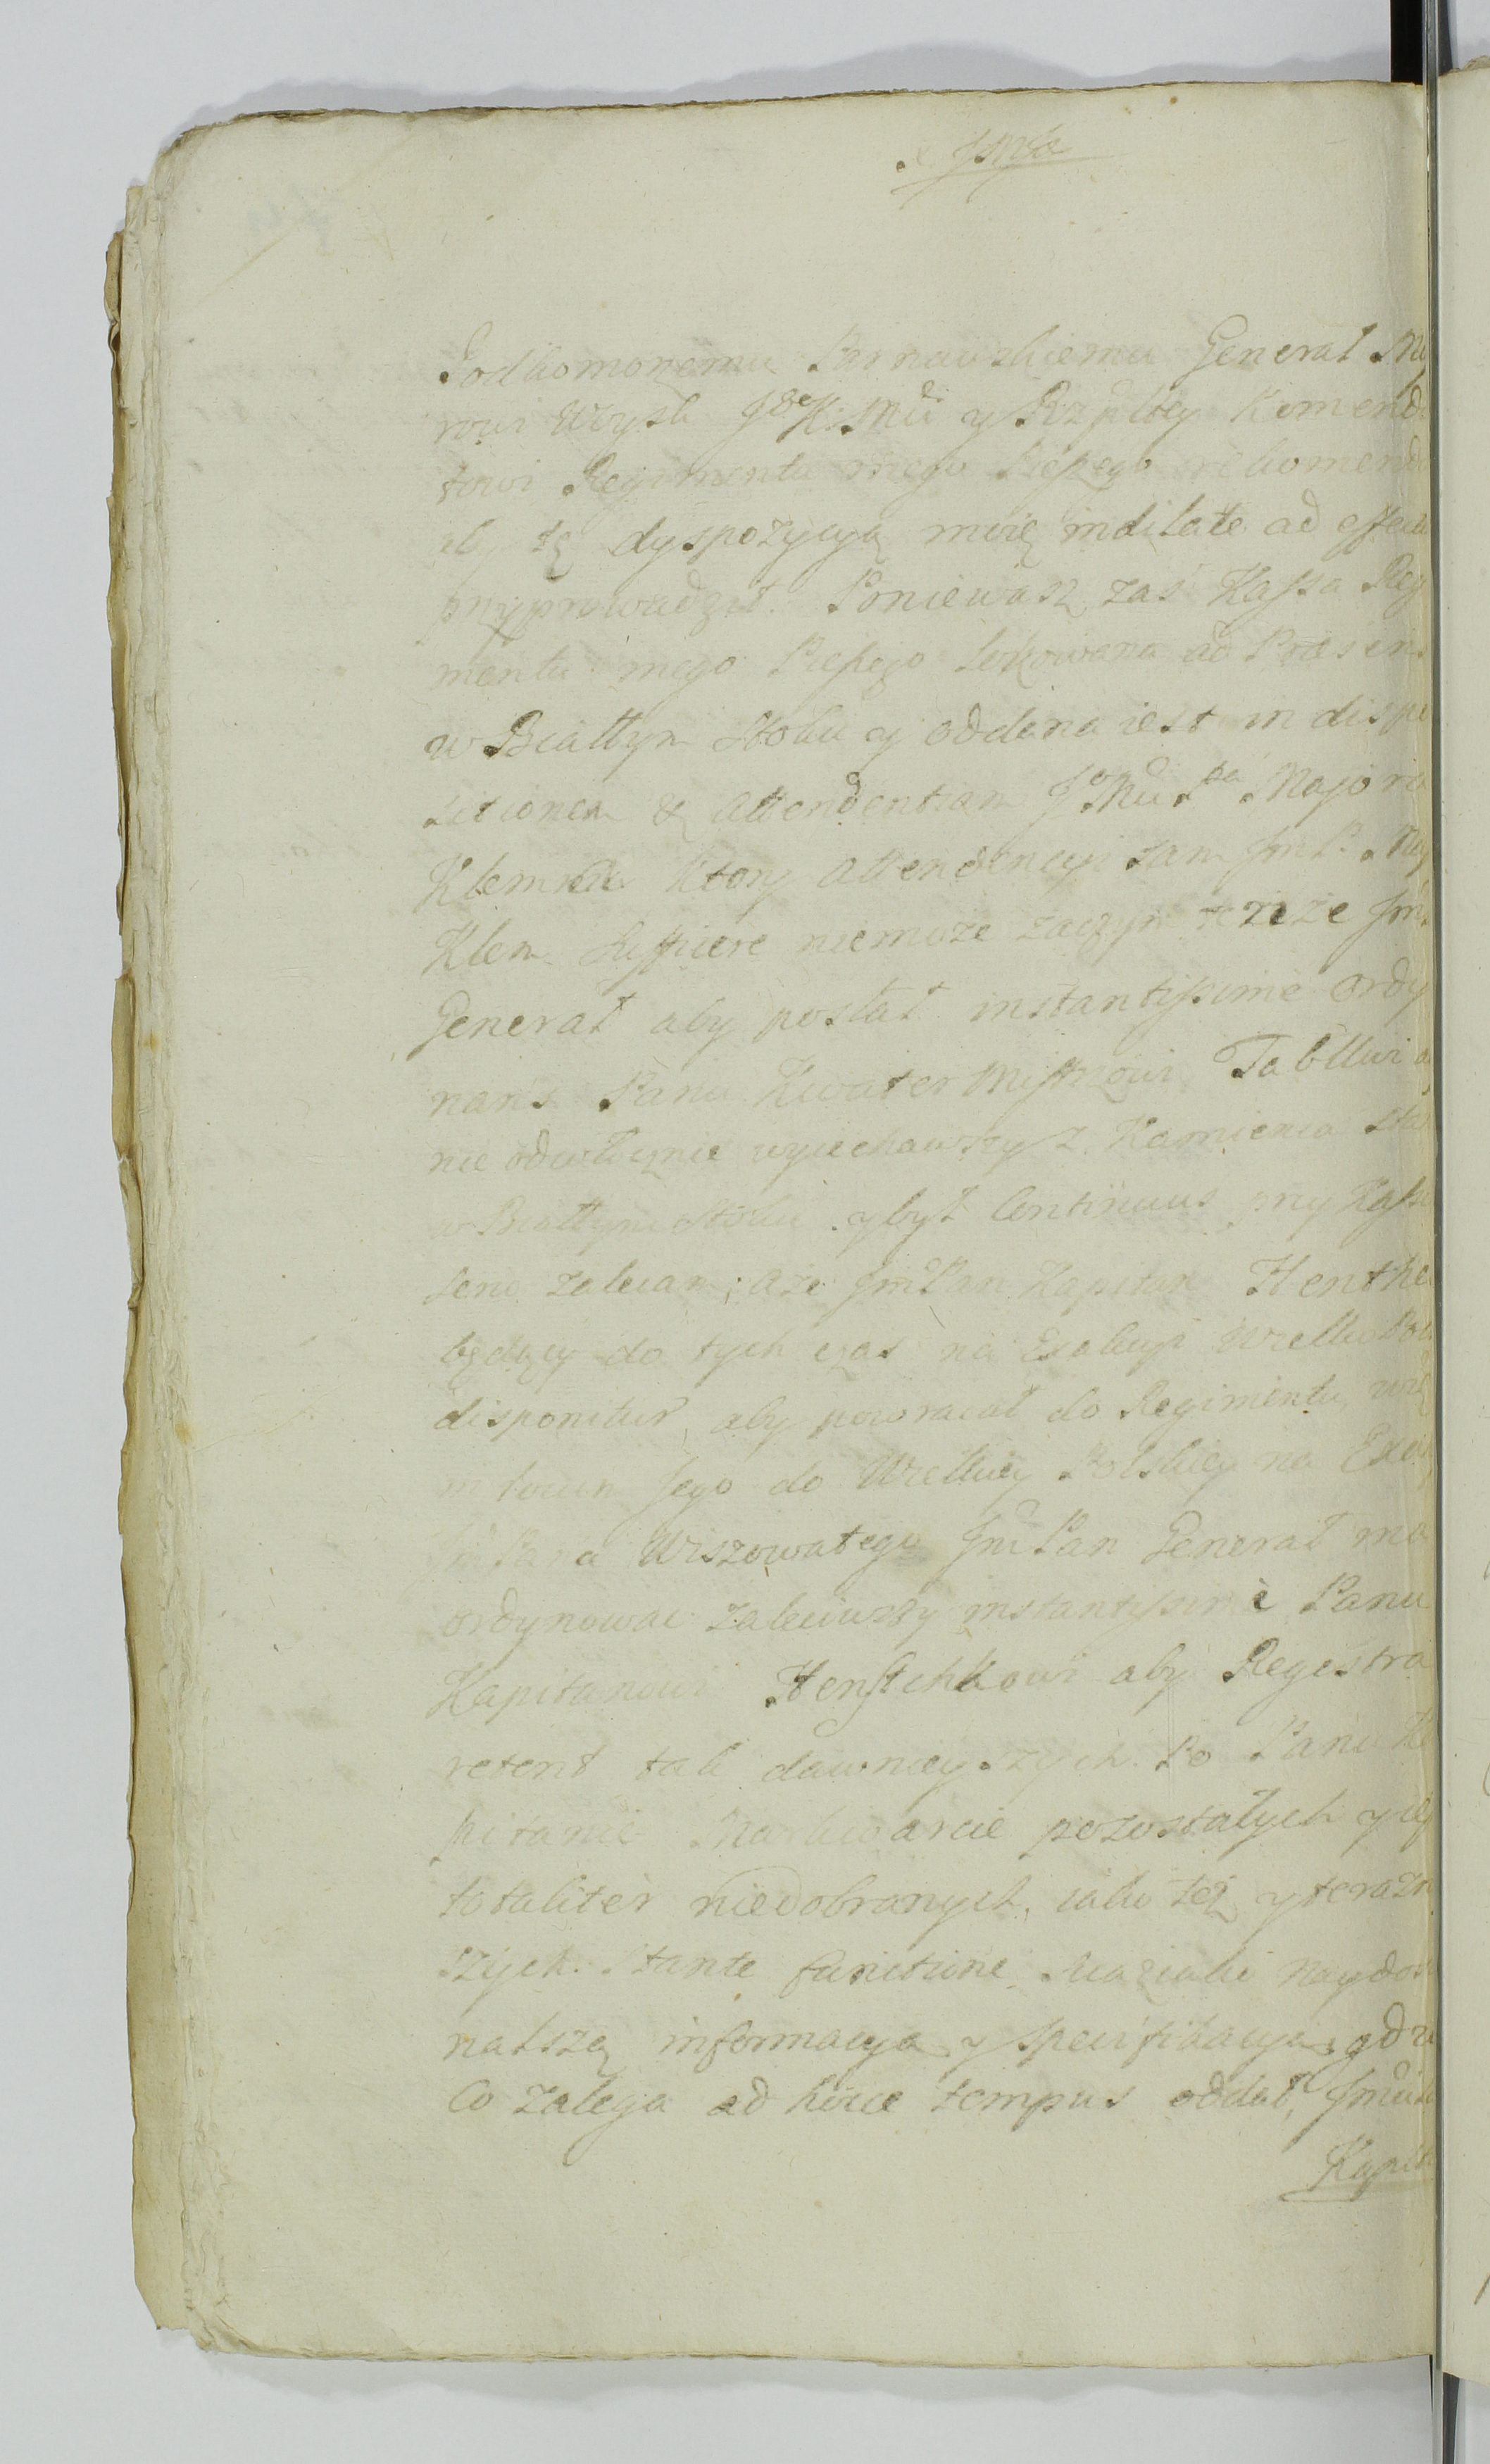 Podkomorzemu Parnawskiemu General Ma
rowi Woysk JKMci y Rzpltey Komend
towi Regimentu mego Pieszego rekomend
aby tę dyspozycyą moię indilate ad effectu
przyprowadził. Poniewasz zas Kassa Reg
mentu mego Pieszego lokowana ad Præsens
w Białłym Stoku y oddana iest in dispo
sitionem & attendentiam JoMci Pa Majora
Klemm ktory attendencyi sam JmP. Maj
Klem. suffićere niemoże zaczym tezże Jm
Generał aby posłał instantissime ordy
nans Panu Kwatermistrzowi
nie odwłocznie wyiechawszy z Kamienca sta
w Białłym Stoku y był Continuus przy Kassi
serio zalecam; a że JmPan Kapitan Henthe
będący do tych czas na Exakcyi Wielko Pol
disponitur, aby powracał do Regimentu,
in locum Jego do Wielkiey Polskiey na Exa
JmPana Wiszowatego JmPan Generał ma
ordynować zaleciwszy instantissime Panu
Kapitanowi aby Regestra
retent tak dawnieyszych Po Panu Ka
pitanie pozostałych y
totaliter niedobranych, iako też y terazn
szych stante functione naydos
natszą informacyą y specifikacyą gdzie
Co zalega ad hocce tempus oddał, Jmci
Kapit